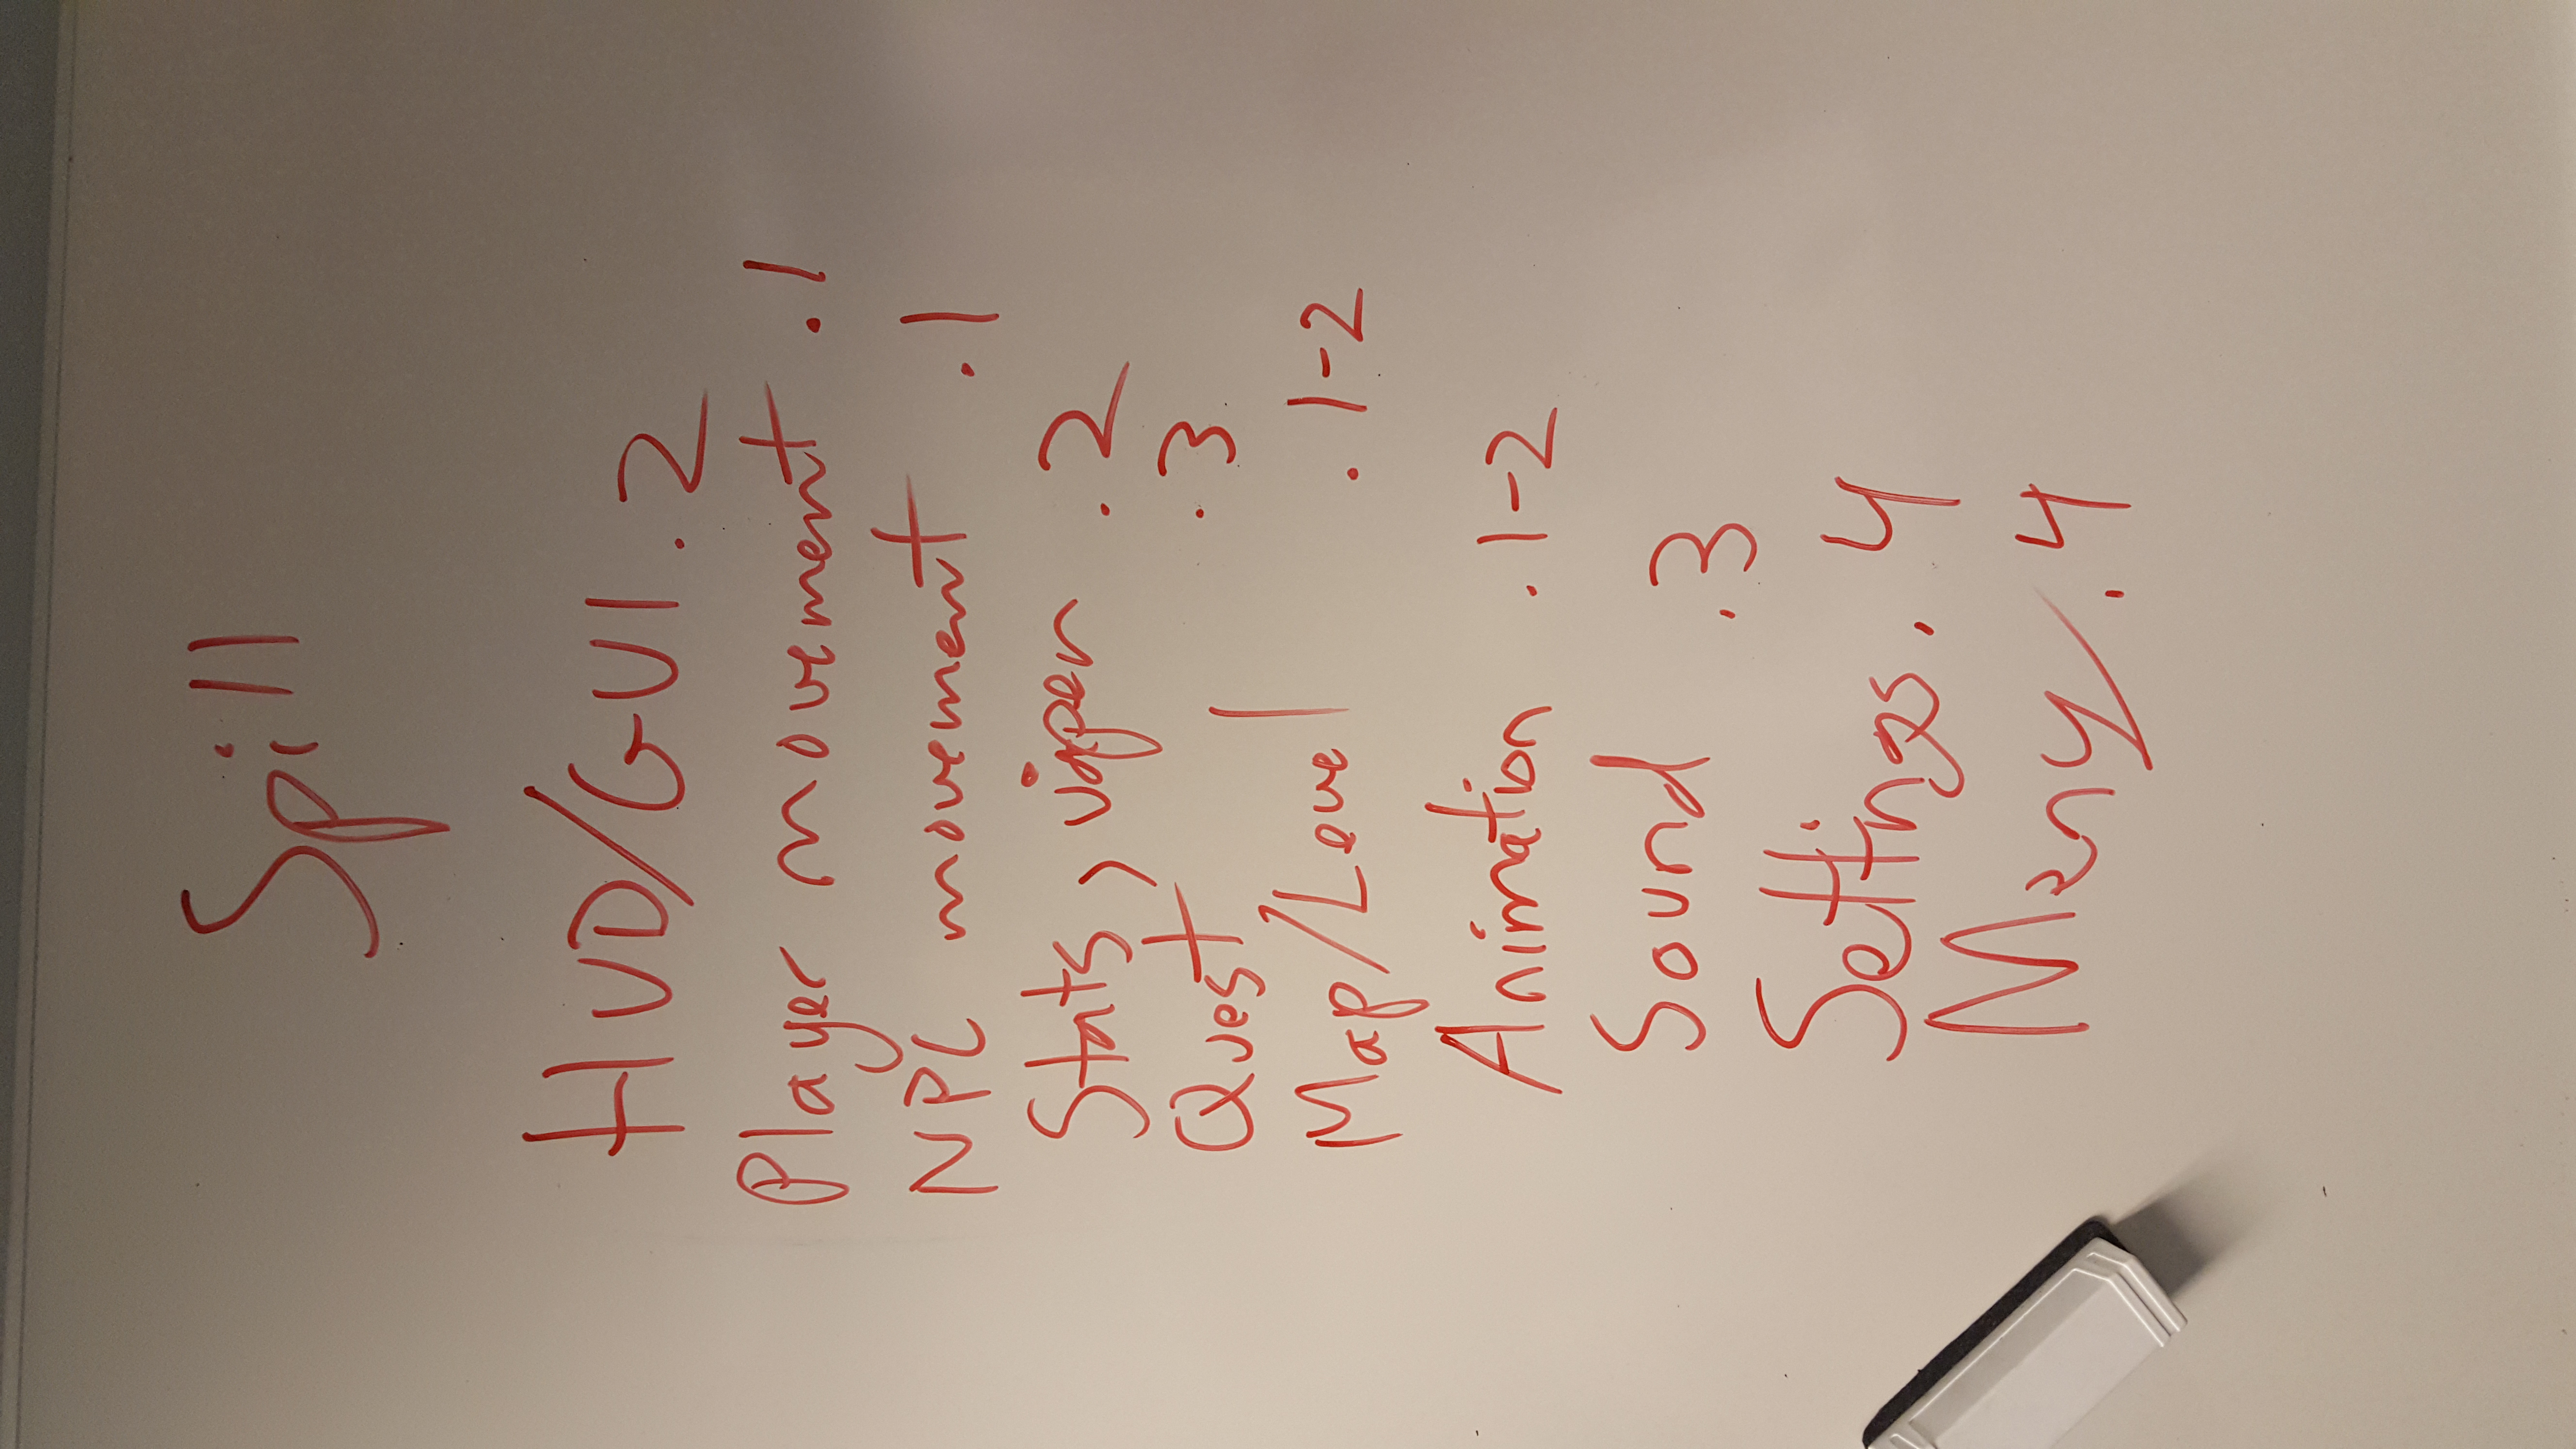 Spill
HUD/GUI . 2
Player movement . 1
NPC movement . 1
Stats, våpen . 2
Quest . 3
Map/Level . 1-2
Animation . 1-2
Sound . 3
Settings . 4
Meny . 4